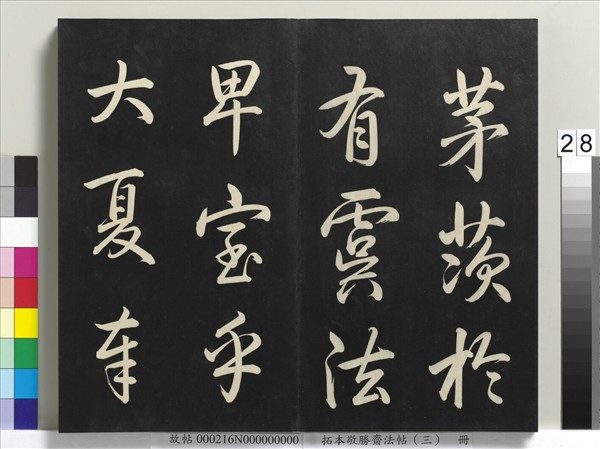 茅茨於
有虞法
卑室乎
大夏
28
故帖 000216N000000000 拓本敬勝齋法帖（三） 冊